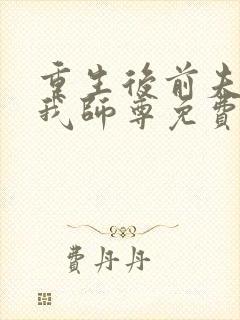 重生後前夫
我師尊免費
費丹丹